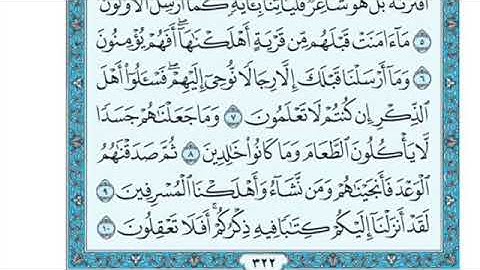 ٱفۡتَرَىٰهُ بَلۡ هُوَ شَاعِرٞ فَلۡيَأۡتِنَا بِـَٔايَةٖ كَمَآ أُرۡسِلَ ٱلۡأَوَّلُونَ
٥ مَآ ءَامَنَتۡ قَبۡلَهُم مِّن قَرۡيَةٍ أَهۡلَكۡنَٰهَآۖ أَفَهُمۡ يُؤۡمِنُونَ
٦ وَمَآ أَرۡسَلۡنَا قَبۡلَكَ إِلَّا رِجَالٗا نُّوحِيٓ إِلَيۡهِمۡۖ فَسۡـَٔلُوٓاْ أَهۡلَ
ٱلذِّكۡرِ إِن كُنتُمۡ لَا تَعۡلَمُونَ ٧ وَمَا جَعَلۡنَٰهُمۡ جَسَدٗا
لَّا يَأۡكُلُونَ ٱلطَّعَامَ وَمَا كَانُواْ خَٰلِدِينَ ٨ ثُمَّ صَدَقۡنَٰهُمُ
ٱلۡوَعۡدَ فَأَنجَيۡنَٰهُمۡ وَمَن نَّشَآءُ وَأَهۡلَكۡنَا ٱلۡمُسۡرِفِينَ ٩
لَقَدۡ أَنزَلۡنَآ إِلَيۡكُمۡ كِتَٰبٗا فِيهِ ذِكۡرُكُمۡۚ أَفَلَا تَعۡقِلُونَ ١٠
٣٢٢